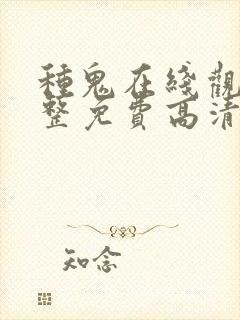 種鬼在綫觀
整免費高清
知念